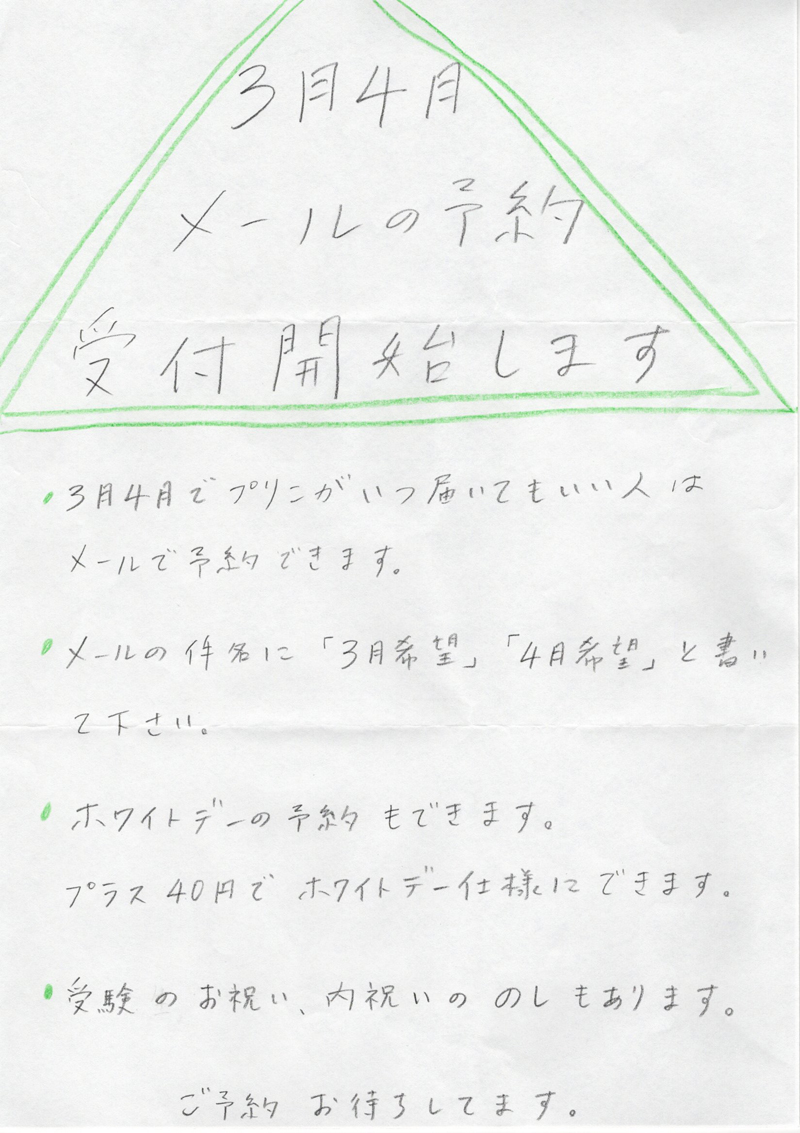 3月4月
メールの予約
受付開始します
・3月4月でプリンがいつ届いてもいい人は
メールで予約できます。
・メールの件名に「3月希望」「4月希望」と書い
て下さい。
・ホワイトデーの予約もできます。
プラス40円でホワイトデー仕様にできます。
・受験のお祝い、内祝いののしもあります。
ご予約お待ちしてます。